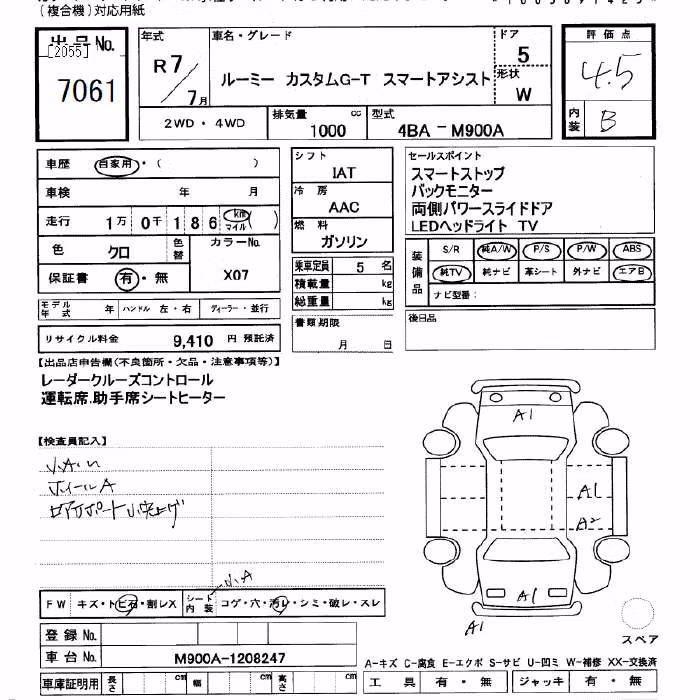 (複合機)対応用紙
出品No.
[2055]
7061
年式
R7/7月
車名・グレード
ルーミー カスタムG-T スマートアシスト
ドア
5
形状
W
2WD・4WD
排気量 cc
1000
型式
4BA-M900A
評価点
4.5
内装
B
車歴 自家用・( )
車検 年 月
走行 1万0千186 km マイル ( )
色 クロ 色替
カラーNo.
X07
保証書 有・無
モデル年式 年 ハンドル 左・右 ディーラー・並行
リサイクル料金 9,410 円 預託済
シフト
IAT
冷房
AAC
燃料
ガソリン
乗車定員 5 名
積載量 kg
総重量 kg
書類期限
月 日
セールスポイント
スマートストップ
バックモニター
両側パワースライドドア
LEDヘッドライト TV
装備品
S/R 純A/W P/S P/W ABS
純TV 純ナビ 革シート 外ナビ エアB
ナビ型番:
後日品
【出品店申告欄(不良箇所・欠品・注意事項等)】
レーダークルーズコントロール
運転席.助手席シートヒーター
【検査員記入】
ホイールA
A1
A1
A2
A1
A1
FW キズ・トビ石・割レX シート内装 コゲ・穴・汚レ・シミ・破レ・スレ
小A
スペア
登録No.
車台No. M900A-1208247
車庫証明用 長さ cm 幅 cm 高さ cm
A-キズ C-腐食 E-エクボ S-サビ U-凹ミ W-補修 XX-交換済
工具 有・無 ジャッキ 有・無